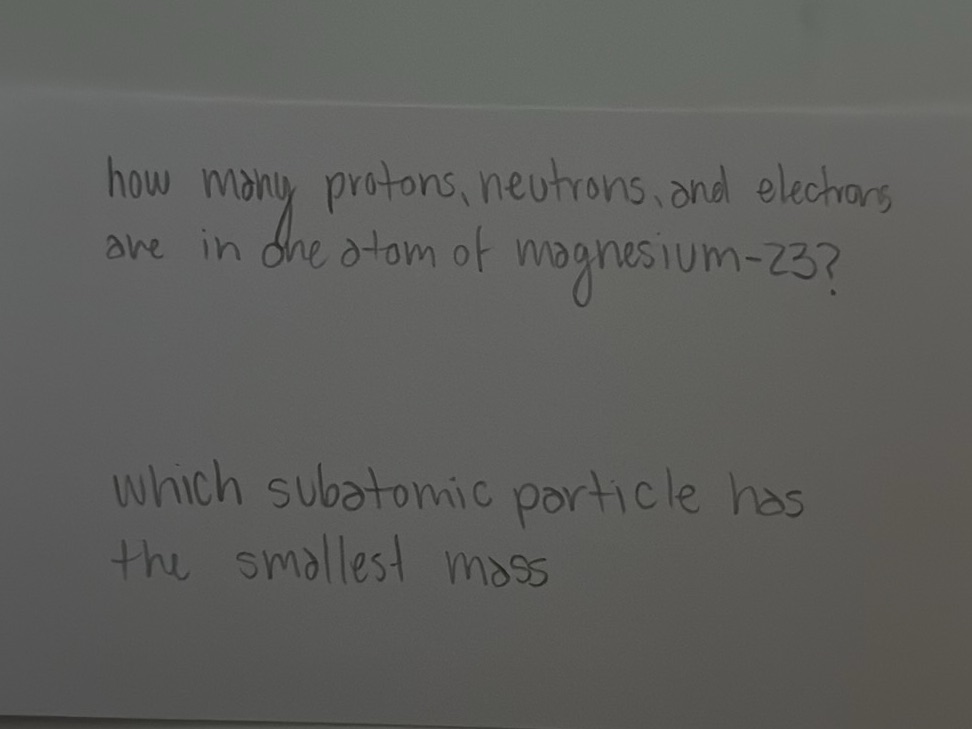 how many protons, neutrons, and electrons
are in one atom of magnesium-23?
which subatomic particle has
the smallest mass